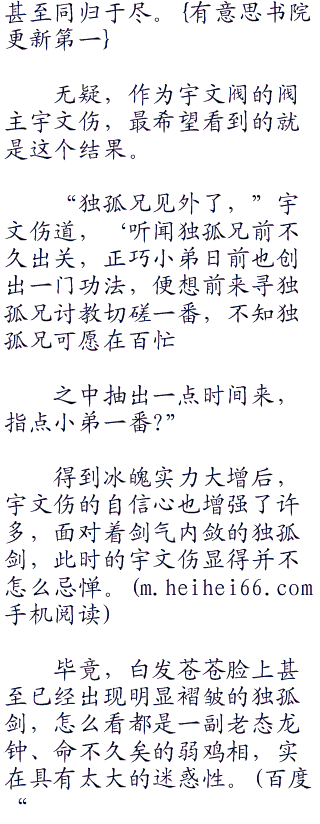 甚至同归于尽。{有意思书院
更新第一}
无疑，作为宇文阀的阀
主宇文伤，最希望看到的就
是这个结果。
“独孤兄见外了，”宇
文伤道，‘听闻独孤兄前不
久出关，正巧小弟日前也创
出一门功法，便想前来寻独
孤兄讨教切磋一番，不知独
孤兄可愿在百忙
之中抽出一点时间来，
指点小弟一番?”
得到冰魄实力大增后，
宇文伤的自信心也增强了许
多，面对着剑气内敛的独孤
剑，此时的宇文伤显得并不
怎么忌惮。(m.heihei66.com
手机阅读)
毕竟，白发苍苍脸上甚
至已经出现明显褶皱的独孤
剑，怎么看都是一副老态龙
钟、命不久矣的弱鸡相，实
在具有太大的迷惑性。(百度
“